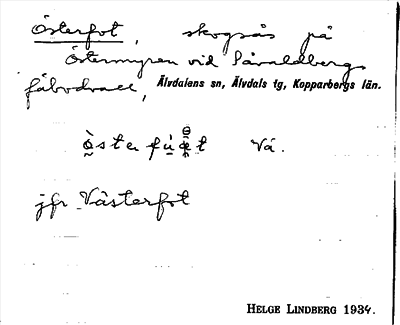 Österfot, skogsås på
Östermyren vid Såraldbergs
fäbodvall, Älvdalens sn, Älvdals tg, Kopparbergs län.
Vå.
jfr Västerfot
HELGE LINDBERG 1934.